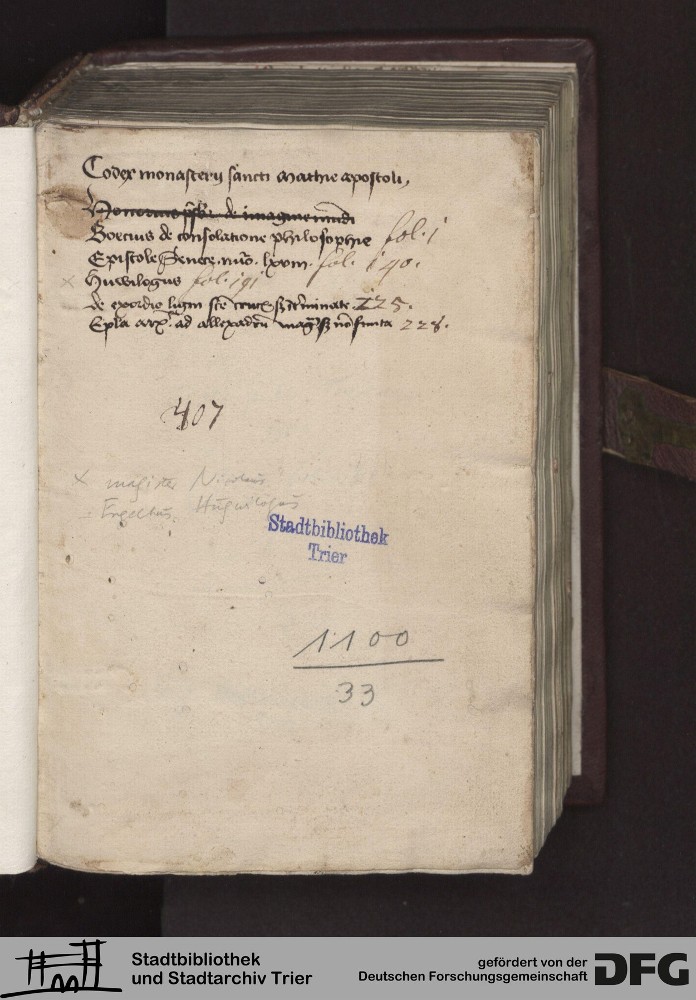 Codex monasterij sancti Mathie apostoli,
Honorius pſbr de imagine mūdi
Boecius de consolatione philosophie fol. 1
Epistole Senece nūo. lxviii. fol. 140.
× Huwilogus fol. 191
de exordio ligni scē crucis s; nō terminate. 225.
Epla arꝫ ad allexādrū s; nō finita 228.
407
× magister Nicolaus
Engelhus. Huguilogus
Stadtbibliothek
Trier
1100
33
Stadtbibliothek
und Stadtarchiv Trier
gefördert von der
Deutschen Forschungsgemeinschaft
DFG